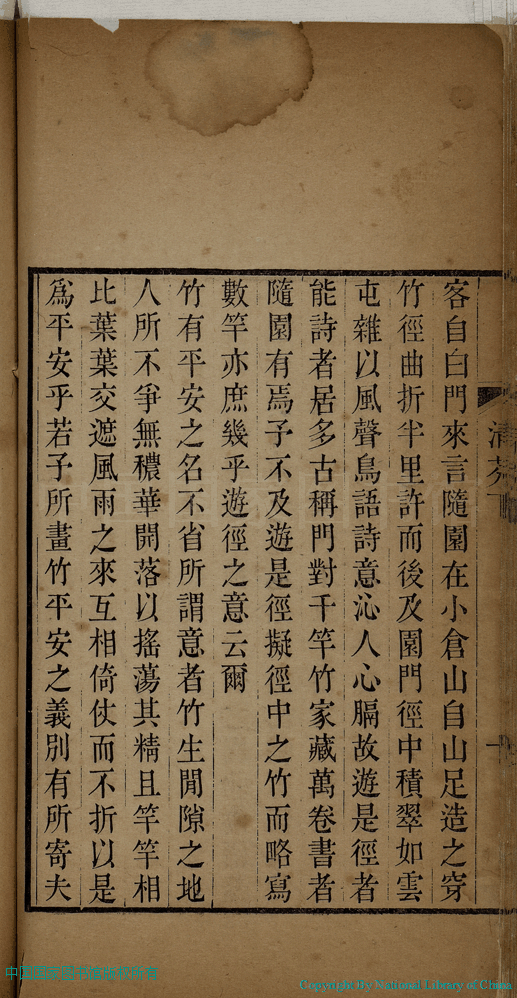 客自白門來言隨園在小倉山自山足造之穿
竹徑曲折半里許而後及園門徑中積翠如雲
屯雜以風聲鳥語詩意沁人心膈故遊是徑者
能詩者居多古稱門對千竿竹家藏萬卷書者
隨園有焉予不及遊是徑擬徑中之竹而略寫
數竿亦庶幾乎遊徑之意云爾
竹有平安之名不省所謂意者竹生閒隙之地
人所不爭無穠華開落以搖蕩其精且竿竿相
比葉葉交遮風雨之來互相倚仗而不折以是
爲平安乎若子所畫竹平安之義別有所寄夫
Copyright By National Library of China